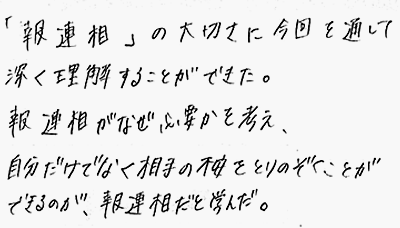 「報連相」の大切さに今回を通して
深く理解することができた。
報連相がなぜ必要かを考え、
自分だけでなく相手の神をとりのぞくことが
できるのが、報連相だと学んだ。